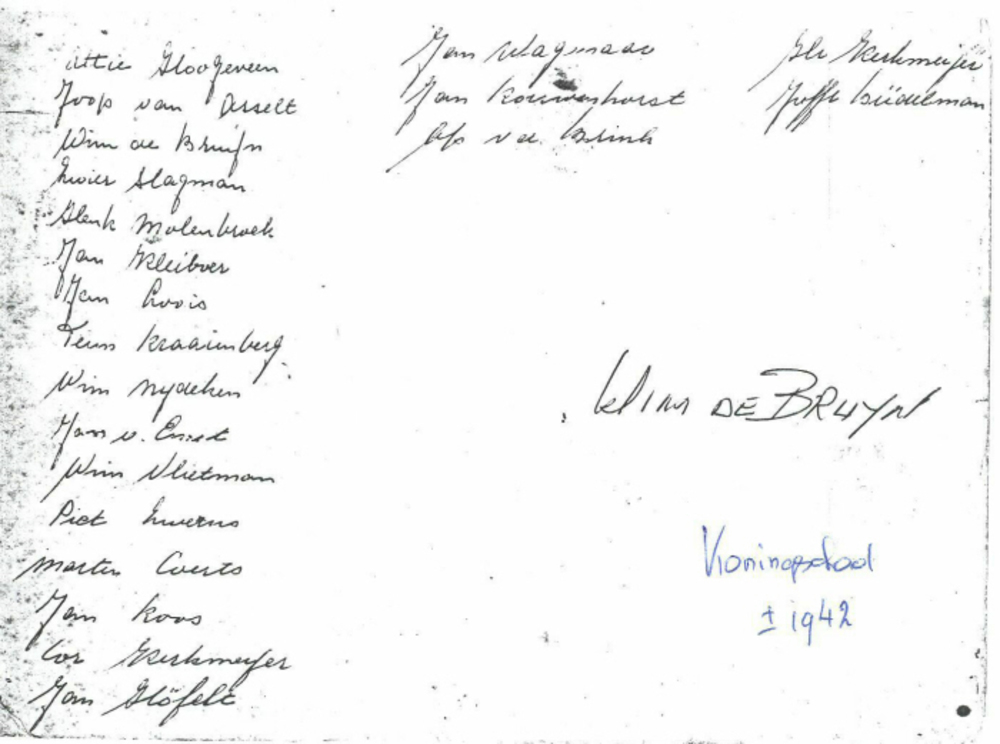 Attie Hoogeveen
Joop van Asselt
Wim de Bruijn
Zwier Slagman
Henk Molenbroek
Jan Kleiboer
Jan
Teun Kraaienberg
Wim Nydeken
Jan v. Emst
Wim Vlietman
Piet
Marten Coerts
Jan Koos
Cor Kerkmeijer
Jan Höfelt
Jan Wagenaar
Jan Kouwenhorst
Ap v de Brink
Kerkmeijer
Juffr Büdelman
Wim DE BRUYN
Koningsdod
± 1942